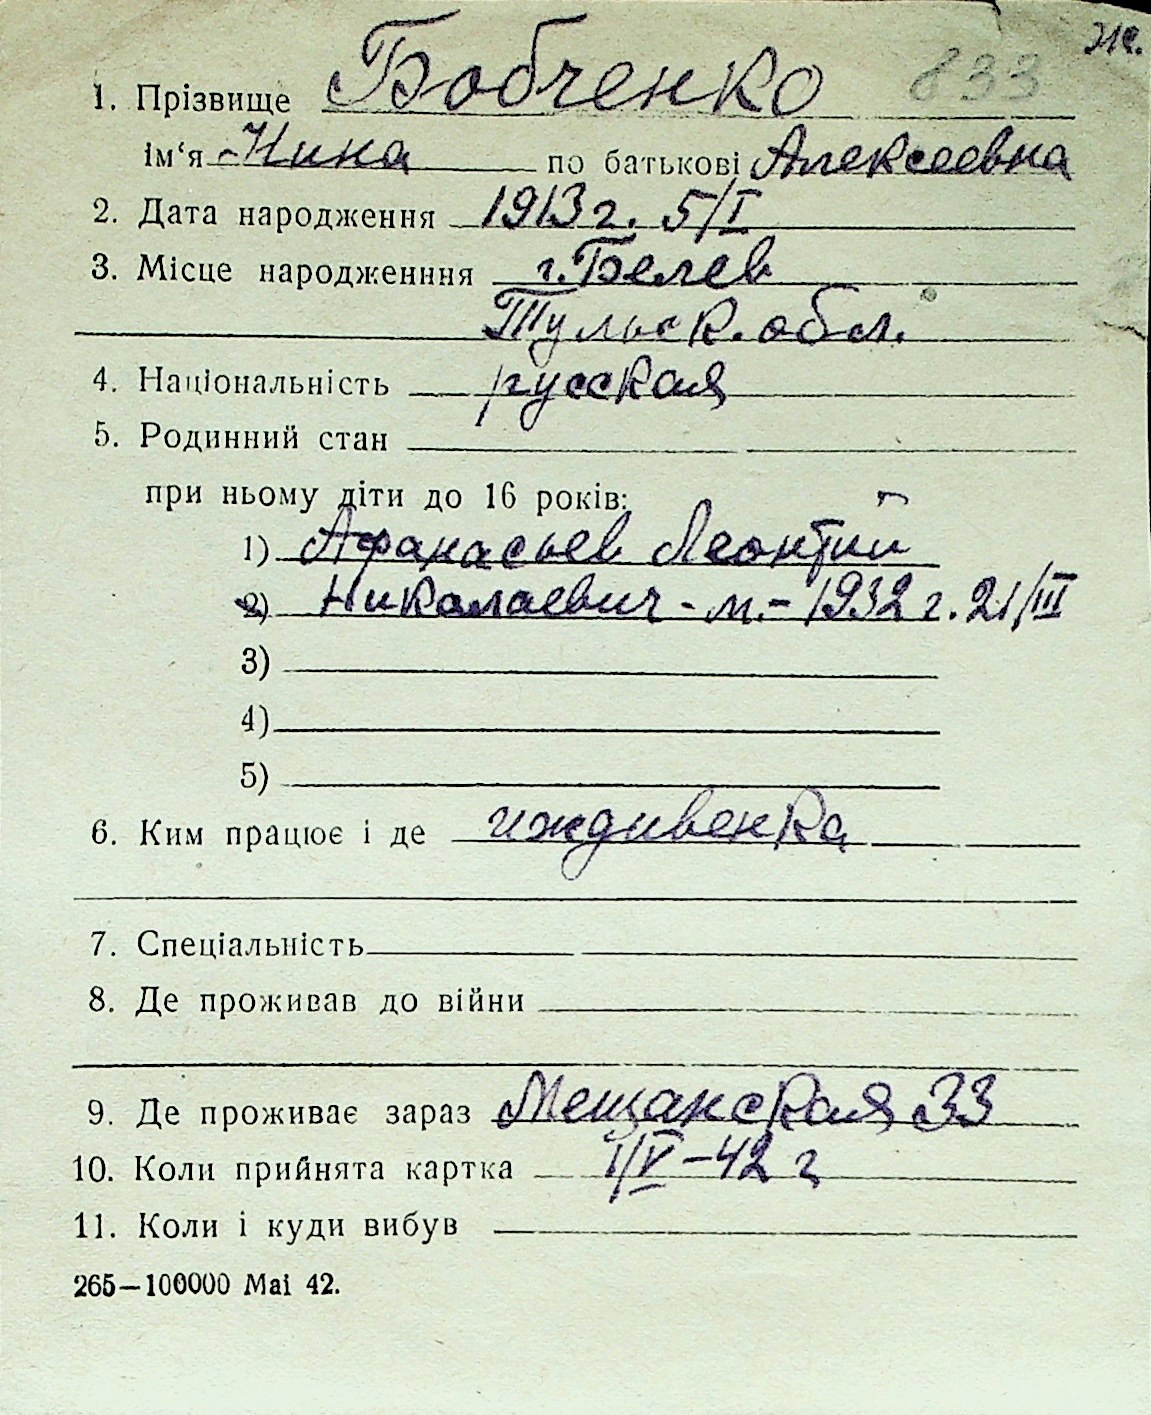 Ж.
833
1. Прізвище Бобченко
ім‘я Нина по батькові Алексеевна
2. Дата народження 1913 г. 5/I
3. Місце народженння г. Белев
Тульск. обл.
4. Національність русская
5. Родинний стан
при ньому діти до 16 років:
1) Афанасьев Леонтий
2) Николаевич - м. - 1932 г. 21/III
3)
4)
5)
6. Ким працює і де иждивенка
7. Спеціальність
8. Де проживав до війни
9. Де проживає зараз Мещанская 33
10. Коли прийнята картка 1/V - 42 г
11. Коли і куди вибув
265—100000 Маі 42.